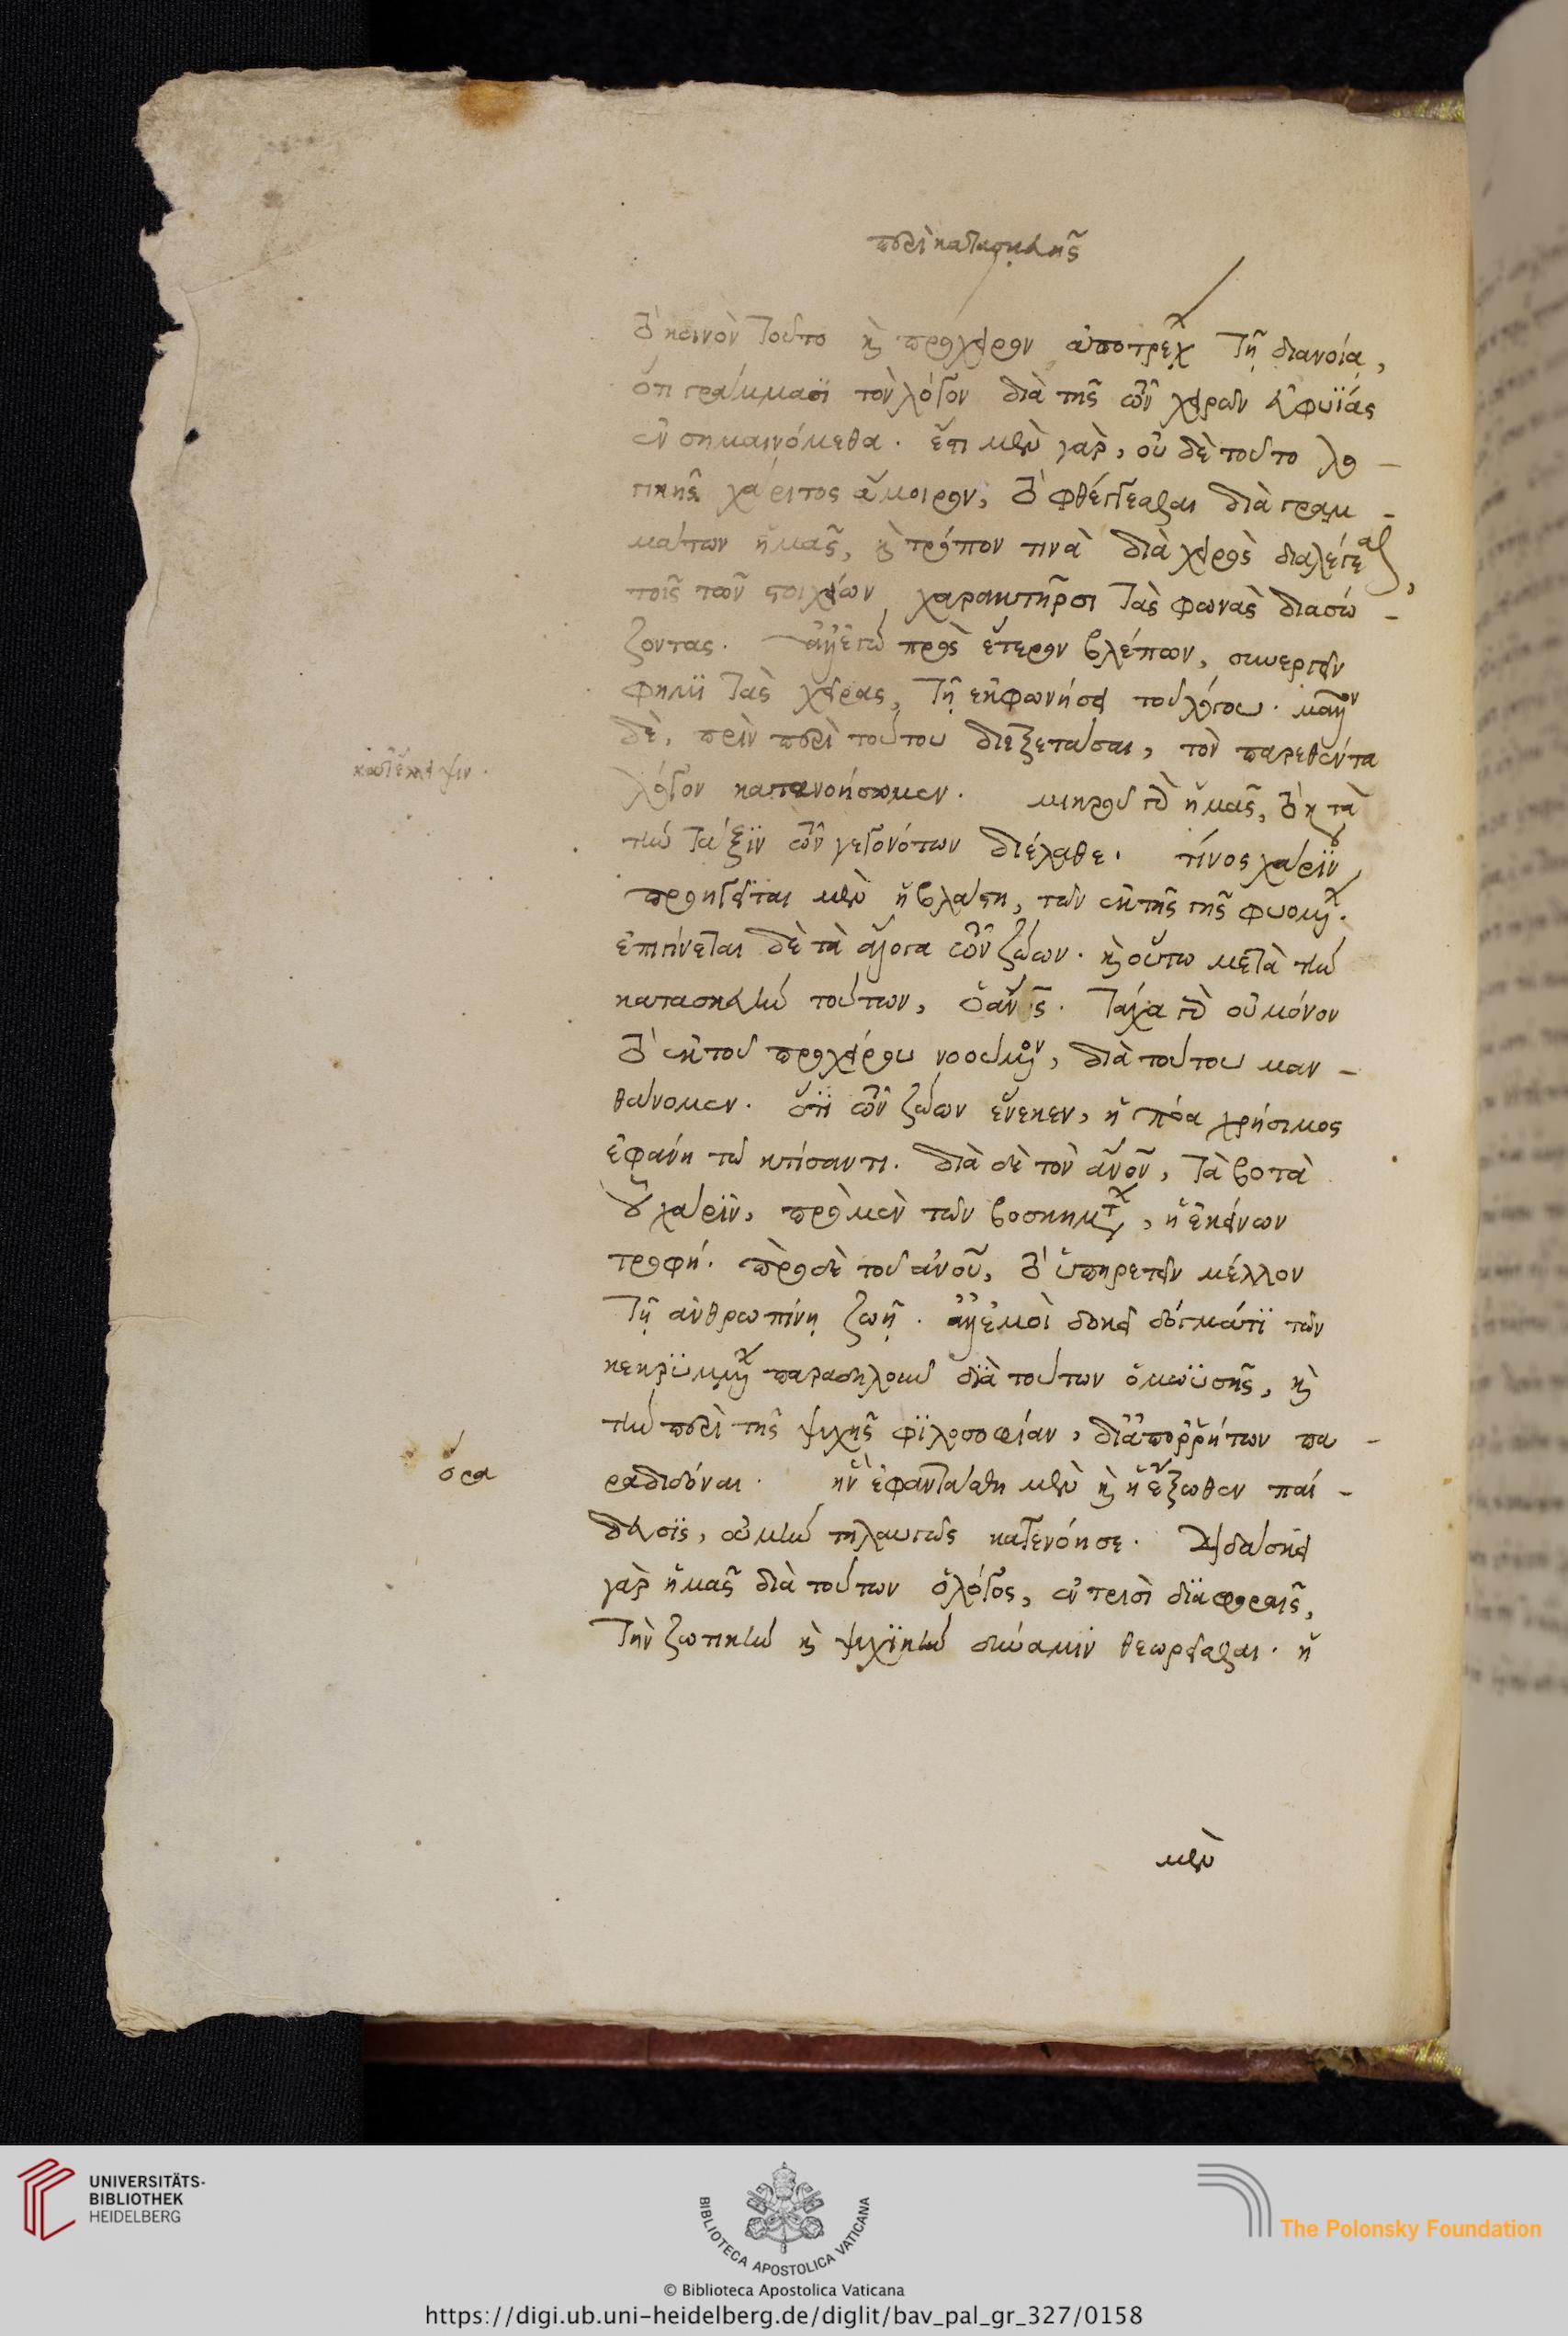 περὶ κατασκευῆς
τὸ κοινὸν τοῦτο καὶ πρόχειρον ἀποτρέχειν τῇ διανοίᾳ,
ὅτι γράμμασι τὸν λόγον διὰ τῆς τῶν χειρῶν εὐφυΐας
ἐνσημαινόμεθα. ἔστι μὲν γὰρ, οὐδὲ τοῦτο λο-
γικῆς χάριτος ἄμοιρον, τὸ φθέγγεσθαι διὰ γραμ-
μάτων ἡμᾶς, καὶ τρόπον τινὰ διὰ χειρὸς διαλέγεσθαι,
τοῖς τῶν στοιχείων χαρακτῆρσι τὰς φωνὰς διασώ-
ζοντας. ἀλλ' ἐγὼ πρὸς ἕτερον βλέπων, συνεργεῖν
φημὶ τὰς χεῖρας, τῇ ἐκφωνήσει τοῦ λόγου. μᾶλλον
δὲ, πρὶν περὶ τούτου διεξετάσαι, τὸν παρεθέντα
λόγον κατανοήσωμεν. μικροῦ γὰρ ἡμᾶς, τὸ κατὰ
τὴν τάξιν τῶν γεγονότων διέλαθε. τίνος χάριν
προηγεῖται μὲν ἡ βλάστη, τῶν ἐκ τῆς γῆς φυομένων.
ἐπιγίνεται δὲ τὰ ἄλογα τῶν ζώων. καὶ οὕτω μετὰ τὴν
κατασκευὴν τούτων, ὁ ἄνος. τάχα γὰρ οὐ μόνον
τὸ ἐκ τοῦ προχείρου νοούμενον, διὰ τούτου μαν-
θάνομεν. ὅτι τῶν ζώων ἕνεκεν, ἡ πόα χρήσιμος
ἐφάνη τῷ κτίσαντι. διὰ δὲ τὸν ἄνον, τὰ βοτὰ
οὗ χάριν, πρὸ μὲν τῶν βοσκημάτων, ἡ ἐκείνων
τροφή. πρὸ δὲ τοῦ ἀνου, τὸ ὑπηρετεῖν μέλλον
τῇ ἀνθρωπίνῃ ζωῇ. ἀλλ' ἐμοὶ δοκεῖ δόγμά τι τῶν
κεκρυμμένων παραδηλοῦν διὰ τούτων ὁ μωϋσῆς, καὶ
τὴν περὶ τῆς ψυχῆς φιλοσοφίαν, δι' ἀπορρήτων πα-
ὅρα
ραδιδόναι. ἣν ἐφαντάσθη μὲν καὶ ἡ ἔξωθεν παί-
δευσις, οὐ μὴν τηλαυγῶς κατενόησε. διδάσκει
γὰρ ἡμᾶς διὰ τούτων ὁ λόγος, ἐν τρισὶ διαφοραῖς,
τὴν ζωτικὴν καὶ ψυχικὴν δύναμιν θεωρεῖσθαι. ἡ
μὲν
UNIVERSITÄTS-
BIBLIOTHEK
HEIDELBERG
BIBLIOTECA APOSTOLICA VATICANA
© Biblioteca Apostolica Vaticana
The Polonsky Foundation
https://digi.ub.uni-heidelberg.de/diglit/bav_pal_gr_327/0158